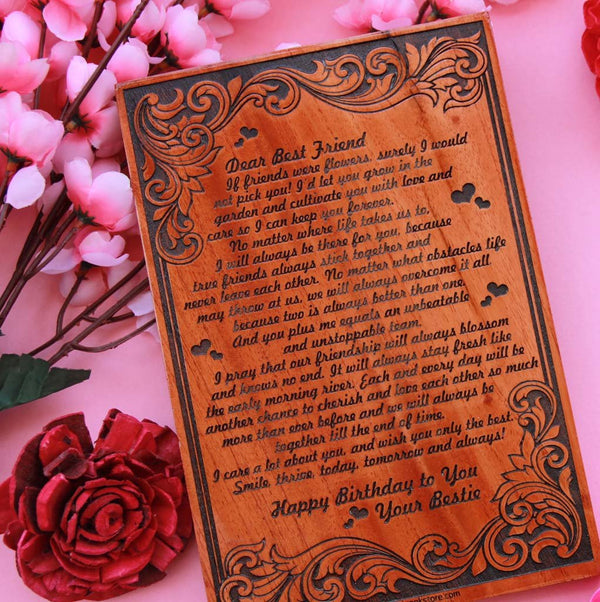 Dear Best Friend
If friends were flowers, surely I would
not pick you! I'd let you grow in the
garden and cultivate you with love and
care so I can keep you forever.
No matter where life takes us to,
I will always be there for you, because
true friends always stick together and
never leave each other. No matter what obstacles life
may throw at us, we will always overcome it all,
because two is always better than one,
And you plus me equals an unbeatable
and unstoppable team.
I pray that our friendship will always blossom
and knows no end. It will always stay fresh like
the early morning river. Each and every day will be
another chance to cherish and love each other so much
more than ever before and we will always be
together till the end of time.
I care a lot about you, and wish you only the best.
Smile, thrive, today, tomorrow and always!
Happy Birthday to You
Your Bestie